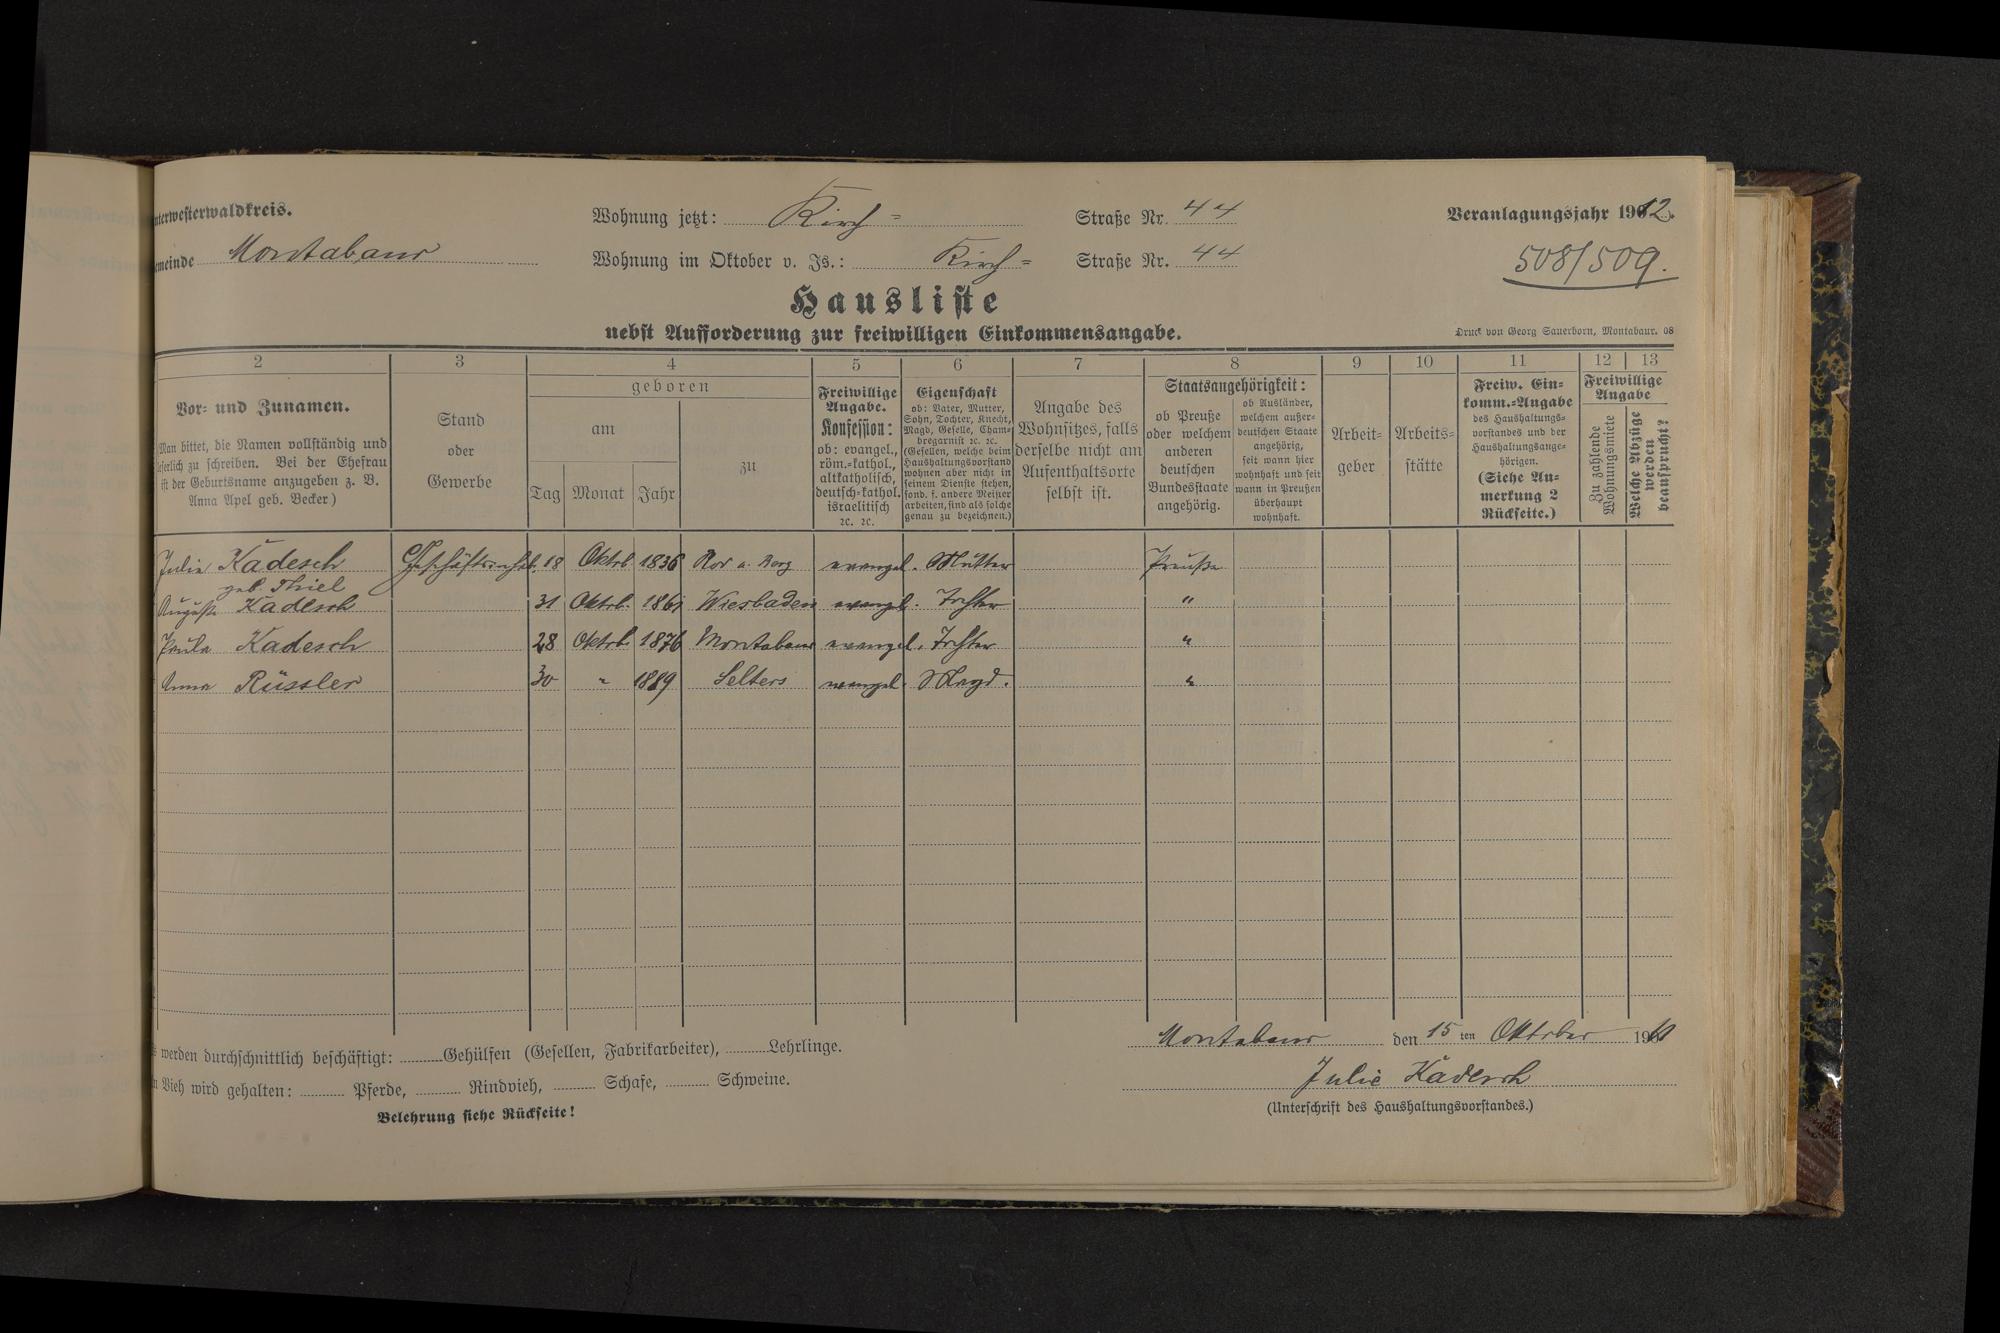 nterwesterwaldkreis.
Wohnung jetzt: Kirch=
Straße Nr. 44
Veranlagungsjahr 1912.
emeinde Montabaur
Wohnung im Oktober v. Js.: Kirch=
Straße Nr. 44
508/509.
Hausliste
nebst Aufforderung zur freiwilligen Einkommensangabe.
Druck von Georg Sauerborn, Montabaur. 08
2 3 4 5 6 7 8 9 10 11 12 13
Vor- und Zunamen.
Man bittet, die Namen vollständig und
leserlich zu schreiben. Bei der Ehefrau
ist der Geburtsname anzugeben z. B.
Anna Apel geb. Becker.)
Stand
oder
Gewerbe
geboren
am
Tag Monat Jahr
zu
Freiwillige
Angabe.
Konfession:
ob: evangel.,
röm.-kathol.,
altkatholisch,
deutsch-kathol.
israelitisch
ꝛc. ꝛc.
Eigenschaft
ob: Vater, Mutter,
Sohn, Tochter, Knecht,
Magd, Geselle, Cham-
bregarnist ꝛc. ꝛc.
(Gesellen, welche beim
Haushaltungsvorstand
wohnen aber nicht in
seinem Dienste stehen,
sond. f. andere Meister
arbeiten, sind als solche
genau zu bezeichnen.)
Angabe des
Wohnsitzes, falls
derselbe nicht am
Aufenthaltsorte
selbst ist.
Staatsangehörigkeit:
ob Preuße
oder welchem
anderen
deutschen
Bundesstaate
angehörig.
ob Ausländer,
welchem außer-
deutschen Staate
angehörig,
seit wann hier
wohnhaft und seit
wann in Preußen
überhaupt
wohnhaft.
Arbeit-
geber
Arbeits-
stätte
Freiw. Ein-
komm.-Angabe
des Haushaltungs-
vorstandes und der
Haushaltungsange-
hörigen.
(Siehe An-
merkung 2
Rückseite.)
Freiwillige
Angabe
Zu zahlende
Wohnungsmiete
Welche Abzüge
werden
beansprucht?
Julie Kädesch Geschäftsinhab. 18 Oktob 1836 evangel. Mutter Preuße
geb. Thiel
Auguste Kädesch 31 Oktob. 1861 Wiesbaden evangel. Tochter "
Paula Kadesch 28 Oktob 1876 Montabaur evangel. Tochter "
Anna Rüssler 30 " 1889 Selters evangel. Magd. "
werden durchschnittlich beschäftigt: Gehülfen (Gesellen, Fabrikarbeiter), Lehrlinge.
Vieh wird gehalten: Pferde, Rindvieh, Schafe, Schweine.
Belehrung siehe Rückseite!
Montabaur den 15 ten Oktober 1911
Julie Kädesch
(Unterschrift des Haushaltungsvorstandes.)